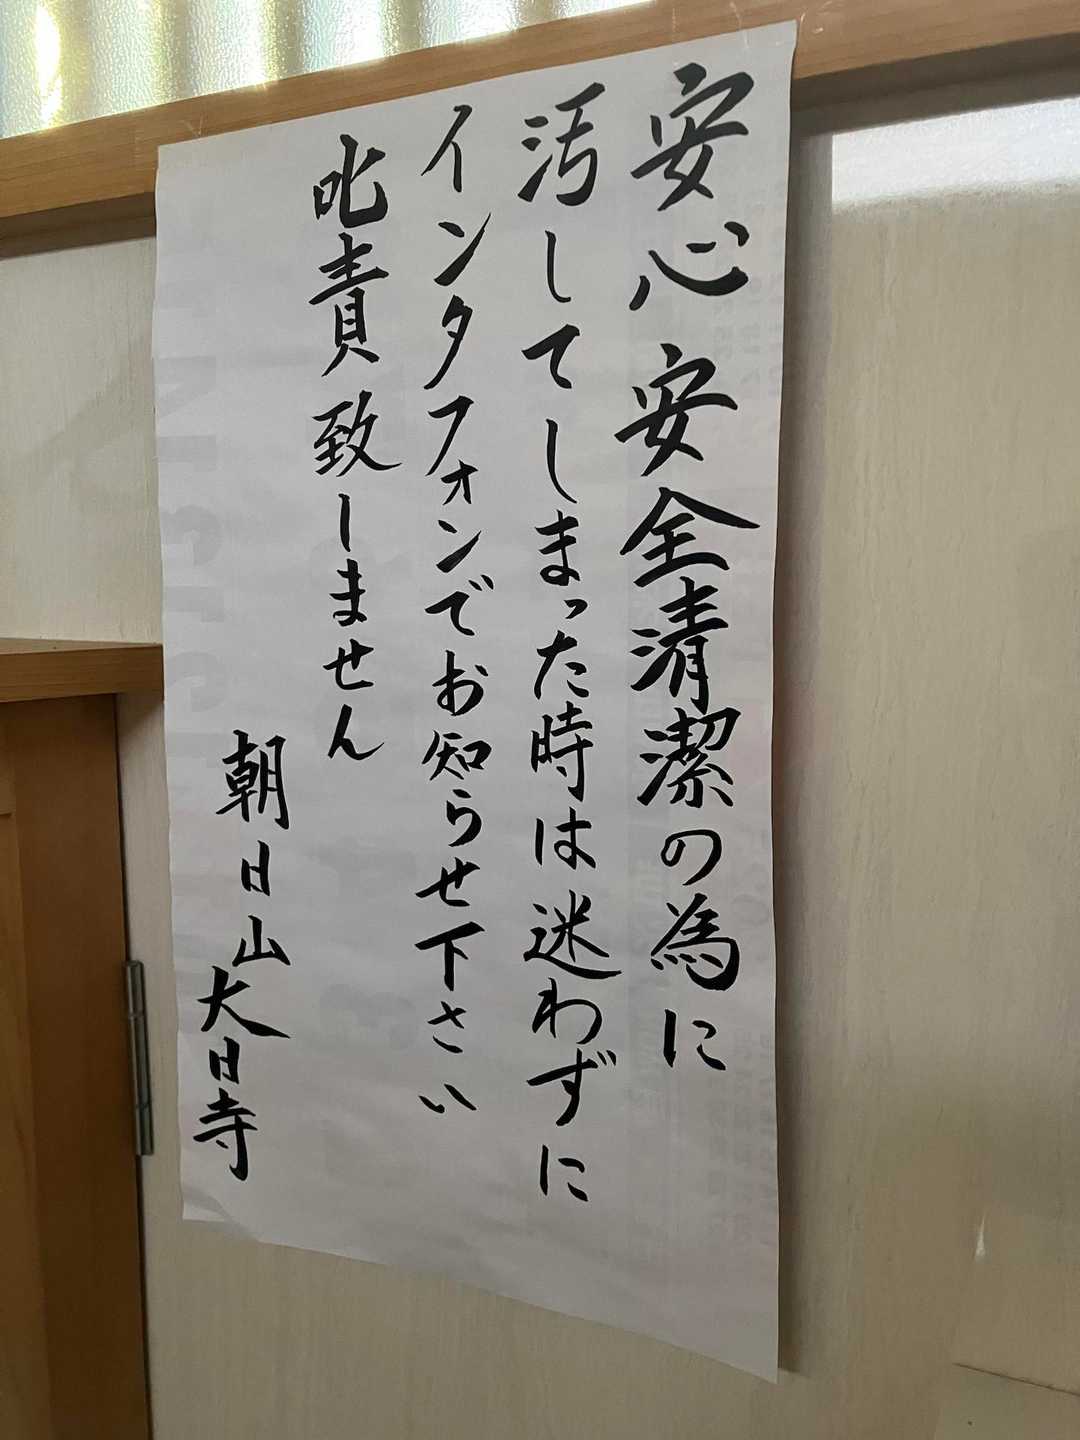 安心安全清潔の為に
汚してしまった時は迷わずに
インタフォンでお知らせ下さい
叱責致しません
朝日山大日寺